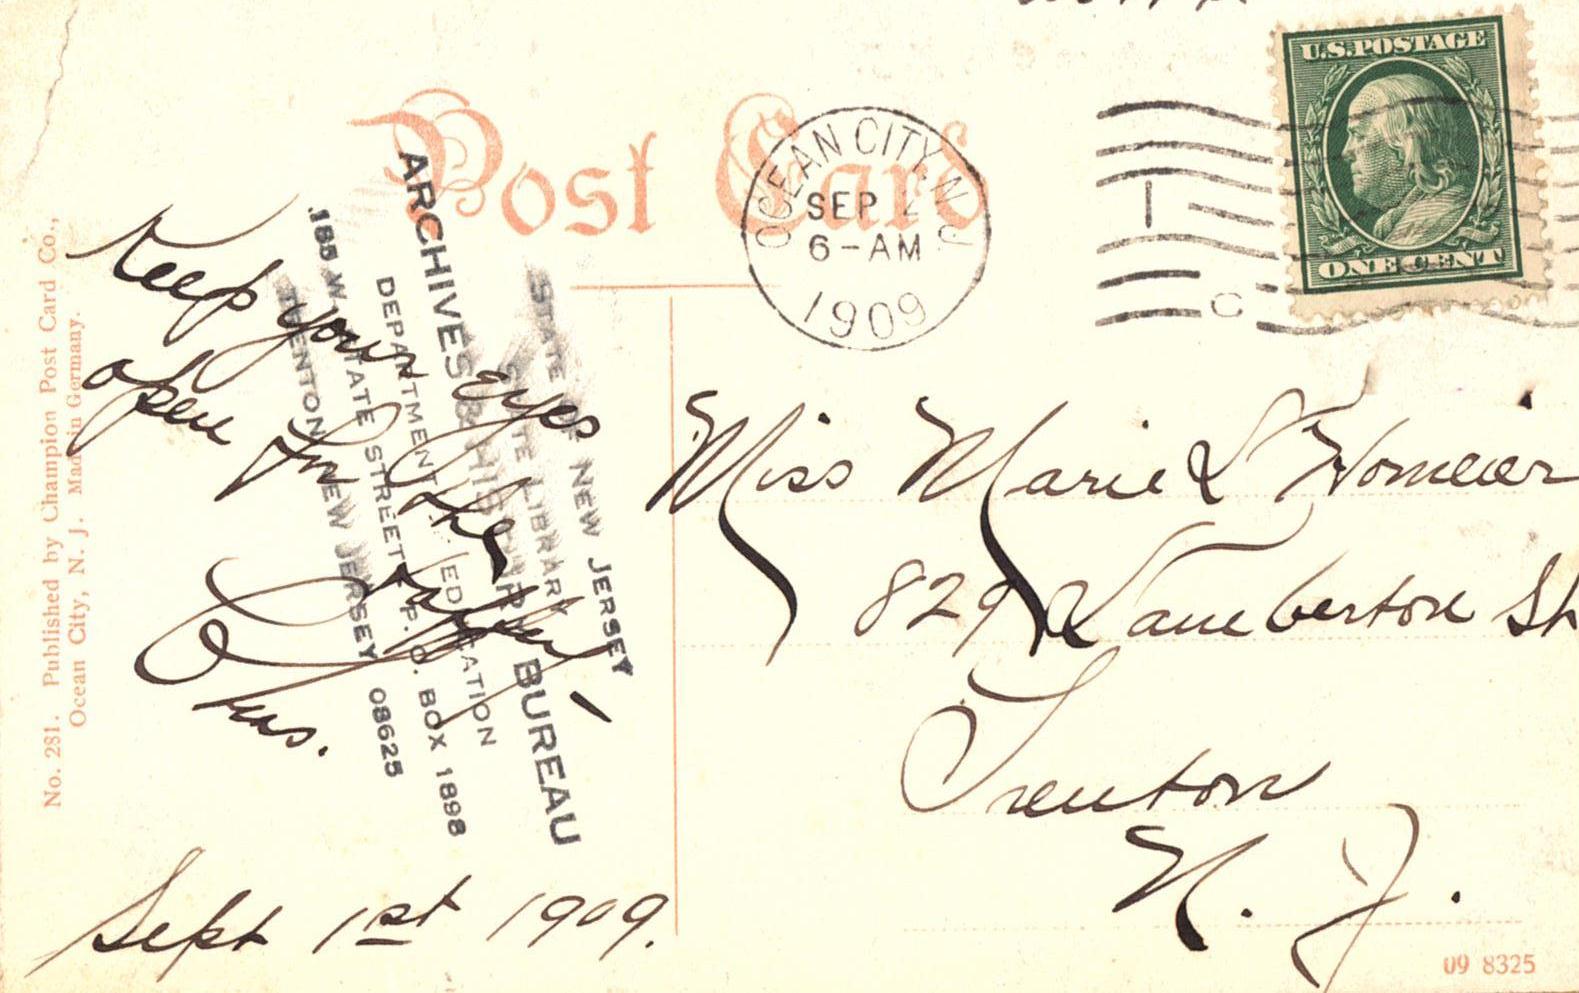 Post Card
OCEAN CITY, N.J.
SEP 2
6-AM
1909
U.S. POSTAGE
ONE CENT
Keep your eyes
open for the
Chas.
Sept 1st 1909.
Miss Marie L Homeier
829 Lamberton St
Trenton
N. J.
STATE OF NEW JERSEY
STATE LIBRARY
ARCHIVES & HISTORY BUREAU
DEPARTMENT OF EDUCATION
185 W. STATE STREET P.O. BOX 1898
TRENTON, NEW JERSEY 08625
No. 281. Published by Champion Post Card Co.,
Ocean City, N. J. Made in Germany.
09 8325